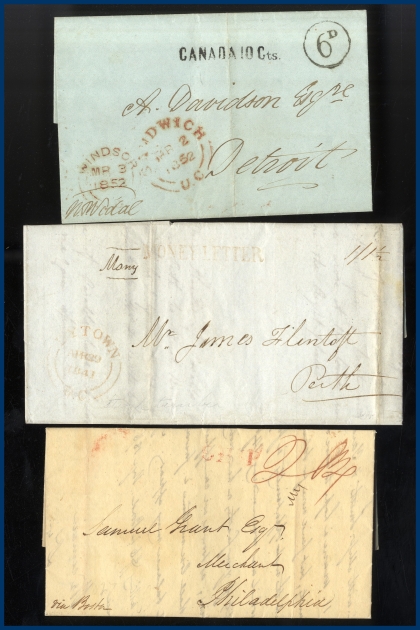 CANADA 10 Cts.
6D
A. Davidson Esqre
Detroit
WINDSOR
MR 3
1852
SANDWICH
MR 2
1852
U.C.
Mony
MONEY LETTER
1/1½
TOWN
1841
Mr. James Flintoft
Perth
Samuel Grant Esqr
Merchant
Philadelphia
via Boston